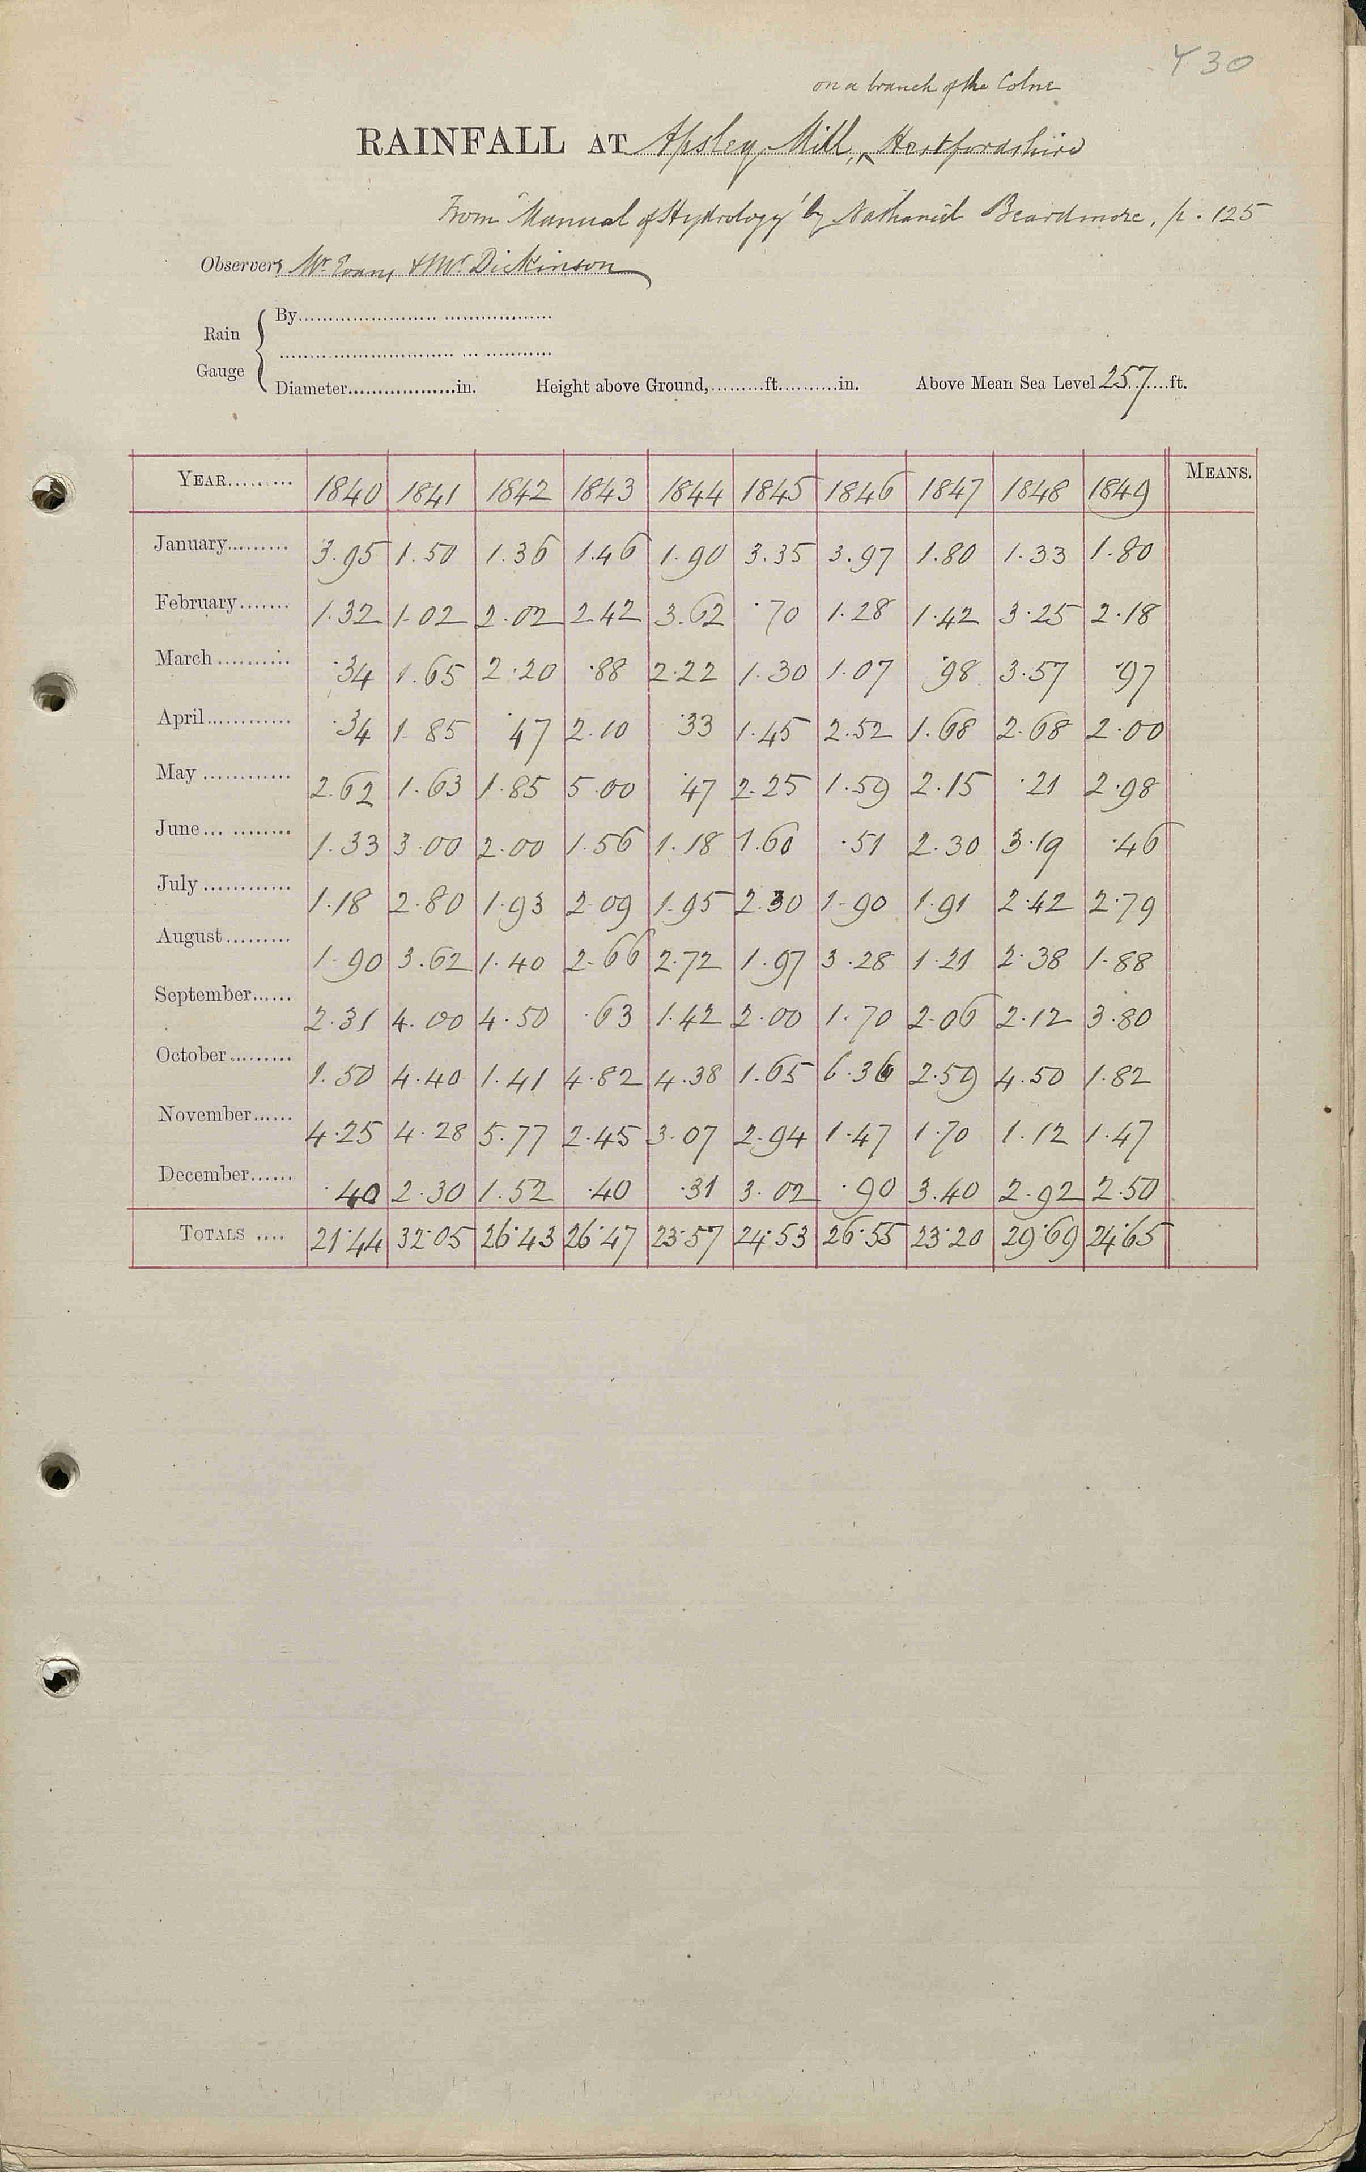 Y 30
on a branch of the Colne
RAINFALL AT Apsley Mill, ‸ Hertfordshire
From "Manual of Hydrology" by Nathaniel Beardmore, p. 125
Observers Mr Evans & Mr Dickinson
Rain Gauge { By
Diameter in. Height above Ground, ft. in. Above Mean Sea Level 257 ft.
YEAR 1840 1841 1842 1843 1844 1845 1846 1847 1848 1849 MEANS.
January 3.95 1.50 1.36 1.46 1.90 3.35 3.97 1.80 1.33 1.80
February 1.32 1.02 2.02 2.42 3.62 .70 1.28 1.42 3.25 2.18
March .34 1.65 2.20 .88 2.22 1.30 1.07 .98 3.57 .97
April .34 1.85 .47 2.10 .33 1.45 2.52 1.68 2.68 2.00
May 2.62 1.63 1.85 5.00 .47 2.25 1.59 2.15 .21 2.98
June 1.33 3.00 2.00 1.56 1.18 1.60 .51 2.30 3.19 .46
July 1.18 2.80 1.93 2.09 1.95 2.30 1.90 1.91 2.42 2.79
August 1.90 3.62 1.40 2.66 2.72 1.97 3.28 1.21 2.38 1.88
September 2.31 4.00 4.50 .63 1.42 2.00 1.70 2.06 2.12 3.80
October 1.50 4.40 1.41 4.82 4.38 1.65 6.36 2.59 4.50 1.82
November 4.25 4.28 5.77 2.45 3.07 2.94 1.47 1.70 1.12 1.47
December .40 2.30 1.52 .40 .31 3.02 .90 3.40 2.92 2.50
TOTALS 21.44 32.05 26.43 26.47 23.57 24.53 26.55 23.20 29.69 24.65